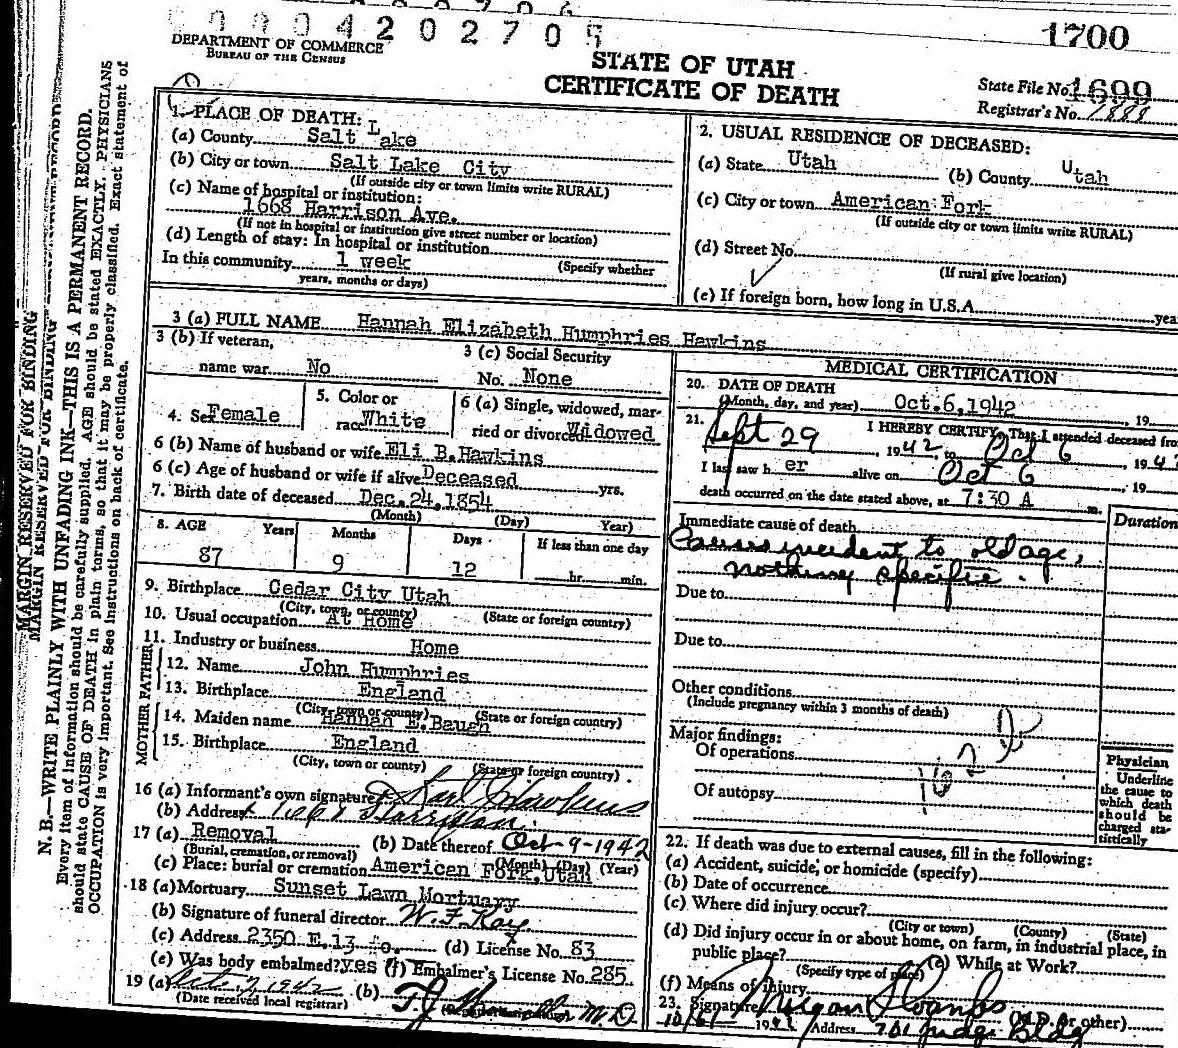 0004202705
1700
DEPARTMENT OF COMMERCE
BUREAU OF THE CENSUS
STATE OF UTAH
CERTIFICATE OF DEATH
State File No. 1699
Registrar's No. 1888
MARGIN RESERVED FOR BINDING
MARGIN RESERVED FOR BINDING
N. B.—WRITE PLAINLY WITH UNFADING INK—THIS IS A PERMANENT RECORD.
Every item of information should be carefully supplied. AGE should be stated EXACTLY. PHYSICIANS
should state CAUSE OF DEATH in plain terms, so that it may be properly classified. Exact statement of
OCCUPATION is very important. See instructions on back of certificate.
1. PLACE OF DEATH:
(a) County Salt Lake
(b) City or town Salt Lake City
(If outside city or town limits write RURAL)
(c) Name of hospital or institution:
1668 Harrison Ave.
(If not in hospital or institution give street number or location)
(d) Length of stay: In hospital or institution
(Specify whether
In this community 1 week
years, months or days)
2. USUAL RESIDENCE OF DECEASED:
(a) State Utah (b) County Utah
(c) City or town American Fork
(If outside city or town limits write RURAL)
(d) Street No.
(If rural give location)
(e) If foreign born, how long in U.S.A. yea
3 (a) FULL NAME Hannah Elizabeth Humphries Hawkins
3 (b) If veteran,
name war No
3 (c) Social Security
No. None
4. Sex Female
5. Color or
race White
6 (a) Single, widowed, mar-
ried or divorced Widowed
6 (b) Name of husband or wife Eli B.Hawkins
6 (c) Age of husband or wife if alive Deceased yrs.
7. Birth date of deceased Dec.24,1854
(Month) (Day) Year)
8. AGE Years Months Days If less than one day
87 9 12 hr. min.
9. Birthplace Cedar City Utah
(City, town, or county) (State or foreign country)
10. Usual occupation At Home
11. Industry or business Home
FATHER
12. Name John Humphries
13. Birthplace England
(City, town or county) (State or foreign country)
MOTHER
14. Maiden name Hannah E.Baugh
15. Birthplace England
(City, town or county) (State or foreign country)
16 (a) Informant's own signature Karl Hawkins
(b) Address 1668 Harrison.
17 (a) Removal (b) Date thereof Oct-9-1942
(Burial, cremation, or removal) (Month) (Day) (Year)
(c) Place: burial or cremation American Fork,Utah
18 (a) Mortuary Sunset Lawn Mortuary
(b) Signature of funeral director W. F. Kay
(c) Address 2350 E.13 So. (d) License No. 83
(e) Was body embalmed? yes (f) Embalmer's License No. 285
19 (a) 1942 (b) T.J. M.D.
(Date received local registrar)
MEDICAL CERTIFICATION
20. DATE OF DEATH
(Month, day, and year) Oct.6,1942 , 19
21. I HEREBY CERTIFY, That I attended deceased fro
Sept 29 , 1942 to Oct 6 , 1942
I last saw h er alive on Oct 6 , 19
death occurred on the date stated above, at 7:30 A m.
Duration
Immediate cause of death
Causes incident to old age,
nothing specific.
Due to
Due to
Other conditions
(Include pregnancy within 3 months of death)
Major findings:
Of operations
Of autopsy
162
Physician
Underline
the cause to
which death
should be
charged sta-
tistically
22. If death was due to external causes, fill in the following:
(a) Accident, suicide, or homicide (specify)
(b) Date of occurrence
(c) Where did injury occur?
(City or town) (County) (State)
(d) Did injury occur in or about home, on farm, in industrial place, in
public place? (e) While at Work?
(Specify type of place)
(f) Means of injury
23. Signature Morgan S Coombs (M.D. or other)
10/6/ 1942 Address 701 Judge Bldg